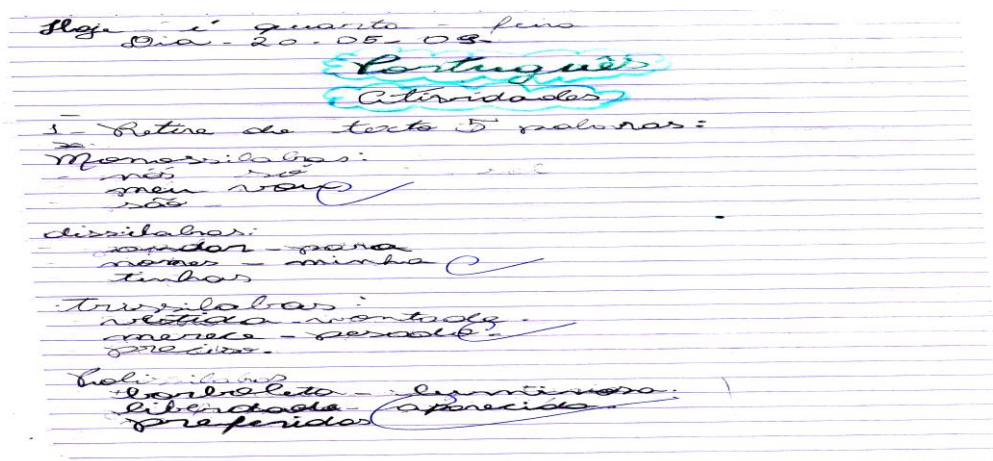 Hoje é quarta-feira
Dia-20-05-09-
Português
Atividades
1- Retire do texto 5 palavras:
Monossilabas:
- nós só
meu vou
são
dissilabas:
andar - para
nomes - minha
tinhas
trissilabas:
vestida - vontade.
merece - pesado.
preciso.
Polissilabas
borboleta - luminosa.
liberdade - aparecida.
preferidas